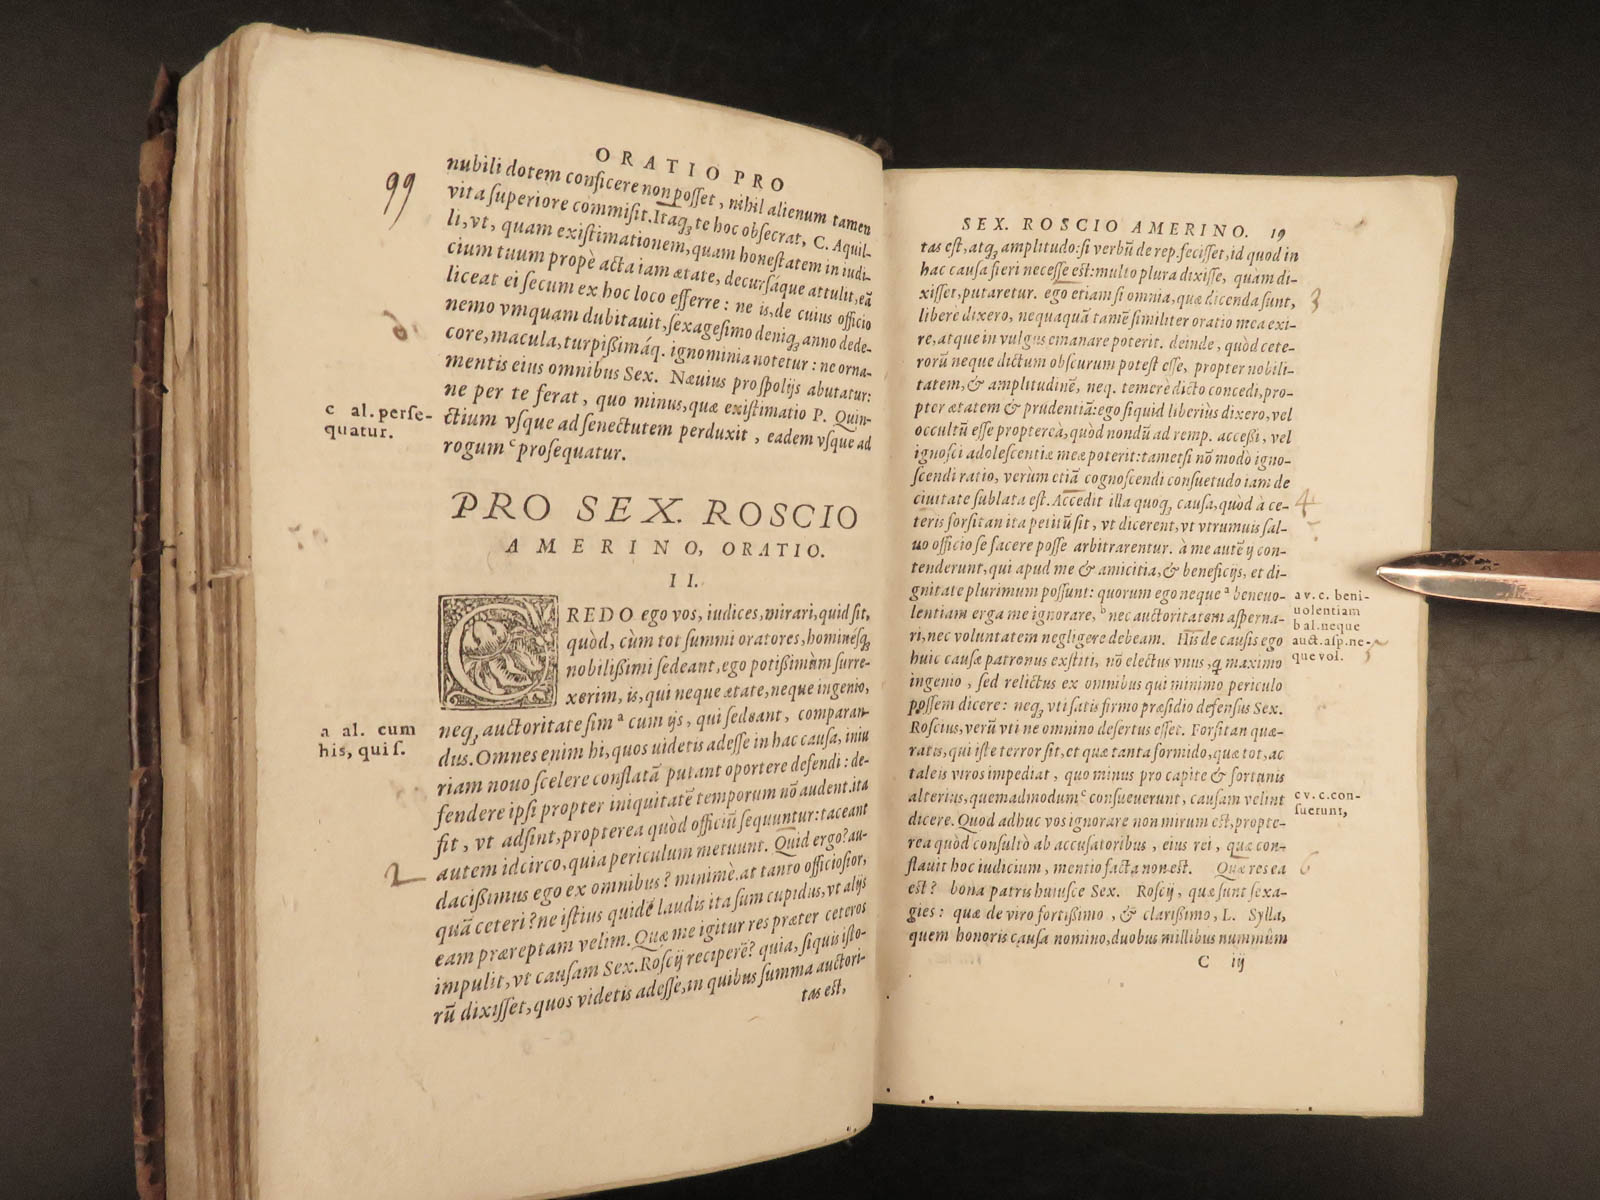 ORATIO PRO
99
nubili dotem conficere non posset, nihil alienum tamen
vita superiore commisit. Itaq; te hoc obsecrat, C. Aquil-
li, vt, quam existimationem, quam honestatem in iudi-
cium tuum propè acta iam ætate, decursáque attulit, eā
liceat ei secum ex hoc loco efferre: ne is, de cuius officio
nemo vmquam dubitauit, sexagesimo deniq; anno dede-
core, macula, turpißimáq. ignominia notetur: ne orna-
mentis eius omnibus Sex. Næuius pro spolijs abutatur:
ne per te ferat, quo minus, quæ existimatio P. Quin-
c al. perse-
quatur.
ctium vsque ad senectutem perduxit, eadem vsque ad
rogum c prosequatur.
PRO SEX. ROSCIO
AMERINO, ORATIO.
II.
CREDO ego vos, iudices, mirari, quid sit,
quòd, cùm tot summi oratores, hominésq;
nobilißimi sedeant, ego potißimùm surre-
xerim, is, qui neque ætate, neque ingenio,
a al. cum
his, qui s.
neq; auctoritate sim a cum ijs, qui sedeant, comparan-
dus. Omnes enim hi, quos uidetis adesse in hac causa, iniu
riam nouo scelere conflatā putant oportere defendi: de-
fendere ipsi propter iniquitatē temporum nō audent. ita
fit, vt adsint, propterea quòd officiū sequuntur: taceant
2
autem idcirco, quia periculum metuunt. Quid ergo? au-
dacißimus ego ex omnibus? minimè. at tanto officiosior,
quā ceteri? ne istius quidē laudis ita sum cupidus, vt alijs
eam præreptam velim. Quæ me igitur res præter ceteros
impulit, vt causam Sex. Roscij reciperē? quia, si quis isto-
rū dixisset, quos videtis adesse, in quibus summa auctori-
tas est,
SEX. ROSCIO AMERINO. 19
tas est, atq; amplitudo: si verbū de rep. fecisset, id quod in
hac causa fieri necesse est: multo plura dixisse, quàm di-
xisset, putaretur. ego etiam si omnia, quæ dicenda sunt,
3
liberè dixero, nequaquā tamē similiter oratio mea exi-
re, atque in vulgus emanare poterit. deinde, quòd cete-
rorū neque dictum obscurum potest esse, propter nobili-
tatem, & amplitudinē, neq. temerè dicto concedi, pro-
pter ætatem & prudentiā: ego siquid liberiùs dixero, vel
occultū esse propterea, quòd nondū ad remp. acceßi, vel
ignosci adolescentiæ meæ poterit: tametsi nō modò igno-
scendi ratio, verùm etiā cognoscendi consuetudo iam de
ciuitate sublata est. Accedit illa quoq; causa, quòd à ce-
4
teris forsitan ita petitū sit, vt dicerent, vt vtrumuis sal-
uo officio se facere posse arbitrarentur. à me autē ij con-
tenderunt, qui apud me & amicitia, & beneficijs, et di-
gnitate plurimum possunt: quorum ego neque a beneuo-
a v. c. beni-
uolentiam
lentiam erga me ignorare, b nec auctoritatem asperna-
b al. neque
auct. asp. ne-
que vol.
ri, nec voluntatem negligere debeam. His de causis ego
5
huic causæ patronus exstiti, nō electus vnus, q maximo
ingenio, sed relictus ex omnibus qui minimo periculo
possem dicere: neq; vti satis firmo præsidio defensus Sex.
Roscius, verū vti ne omnino desertus esset. Forsitan quæ-
ratis, qui iste terror sit, et quæ tanta formido, quæ tot, ac
taleis viros impediat, quo minus pro capite & fortunis
alterius, quemadmodum c consueuerunt, causam velint
c v. c. con-
suerunt,
dicere. Quod adhuc vos ignorare non mirum est, propte-
rea quòd consultò ab accusatoribus, eius rei, quæ con-
flauit hoc iudicium, mentio facta non est. Quæ res ea
6
est? bona patris huiusce Sex. Roscij, quæ sunt sexa-
gies: quæ de viro fortißimo, & clarißimo, L. Sylla,
quem honoris causa nomino, duobus millibus nummûm
C iij